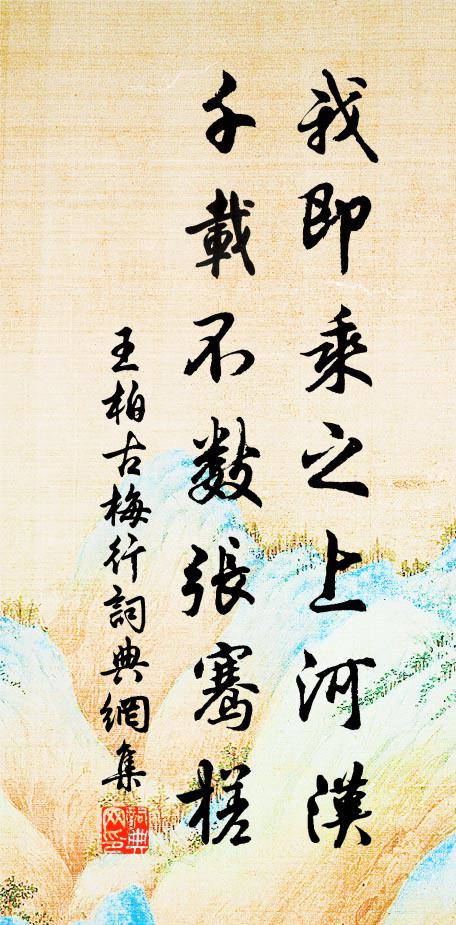 我即乘之上河漢
千載不數張騫槎
王柏古梅行詞典網集
詞典